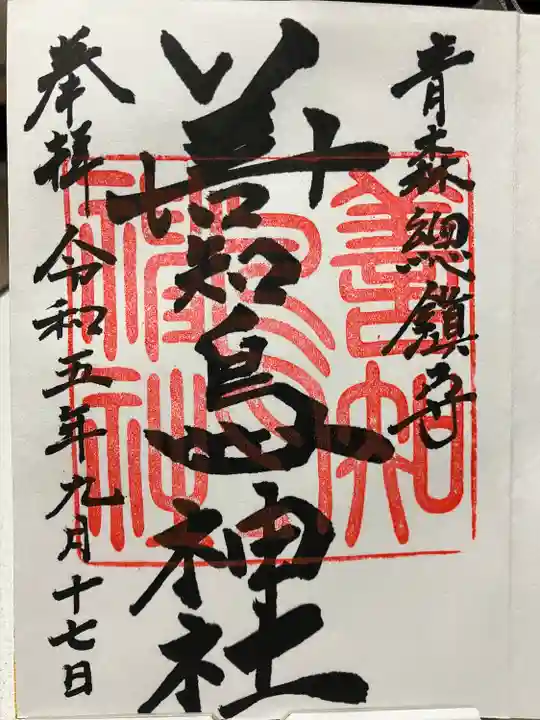 青森總鎮守
善知鳥神社
奉拝 令和五年九月十七日
善知
鳥
神社